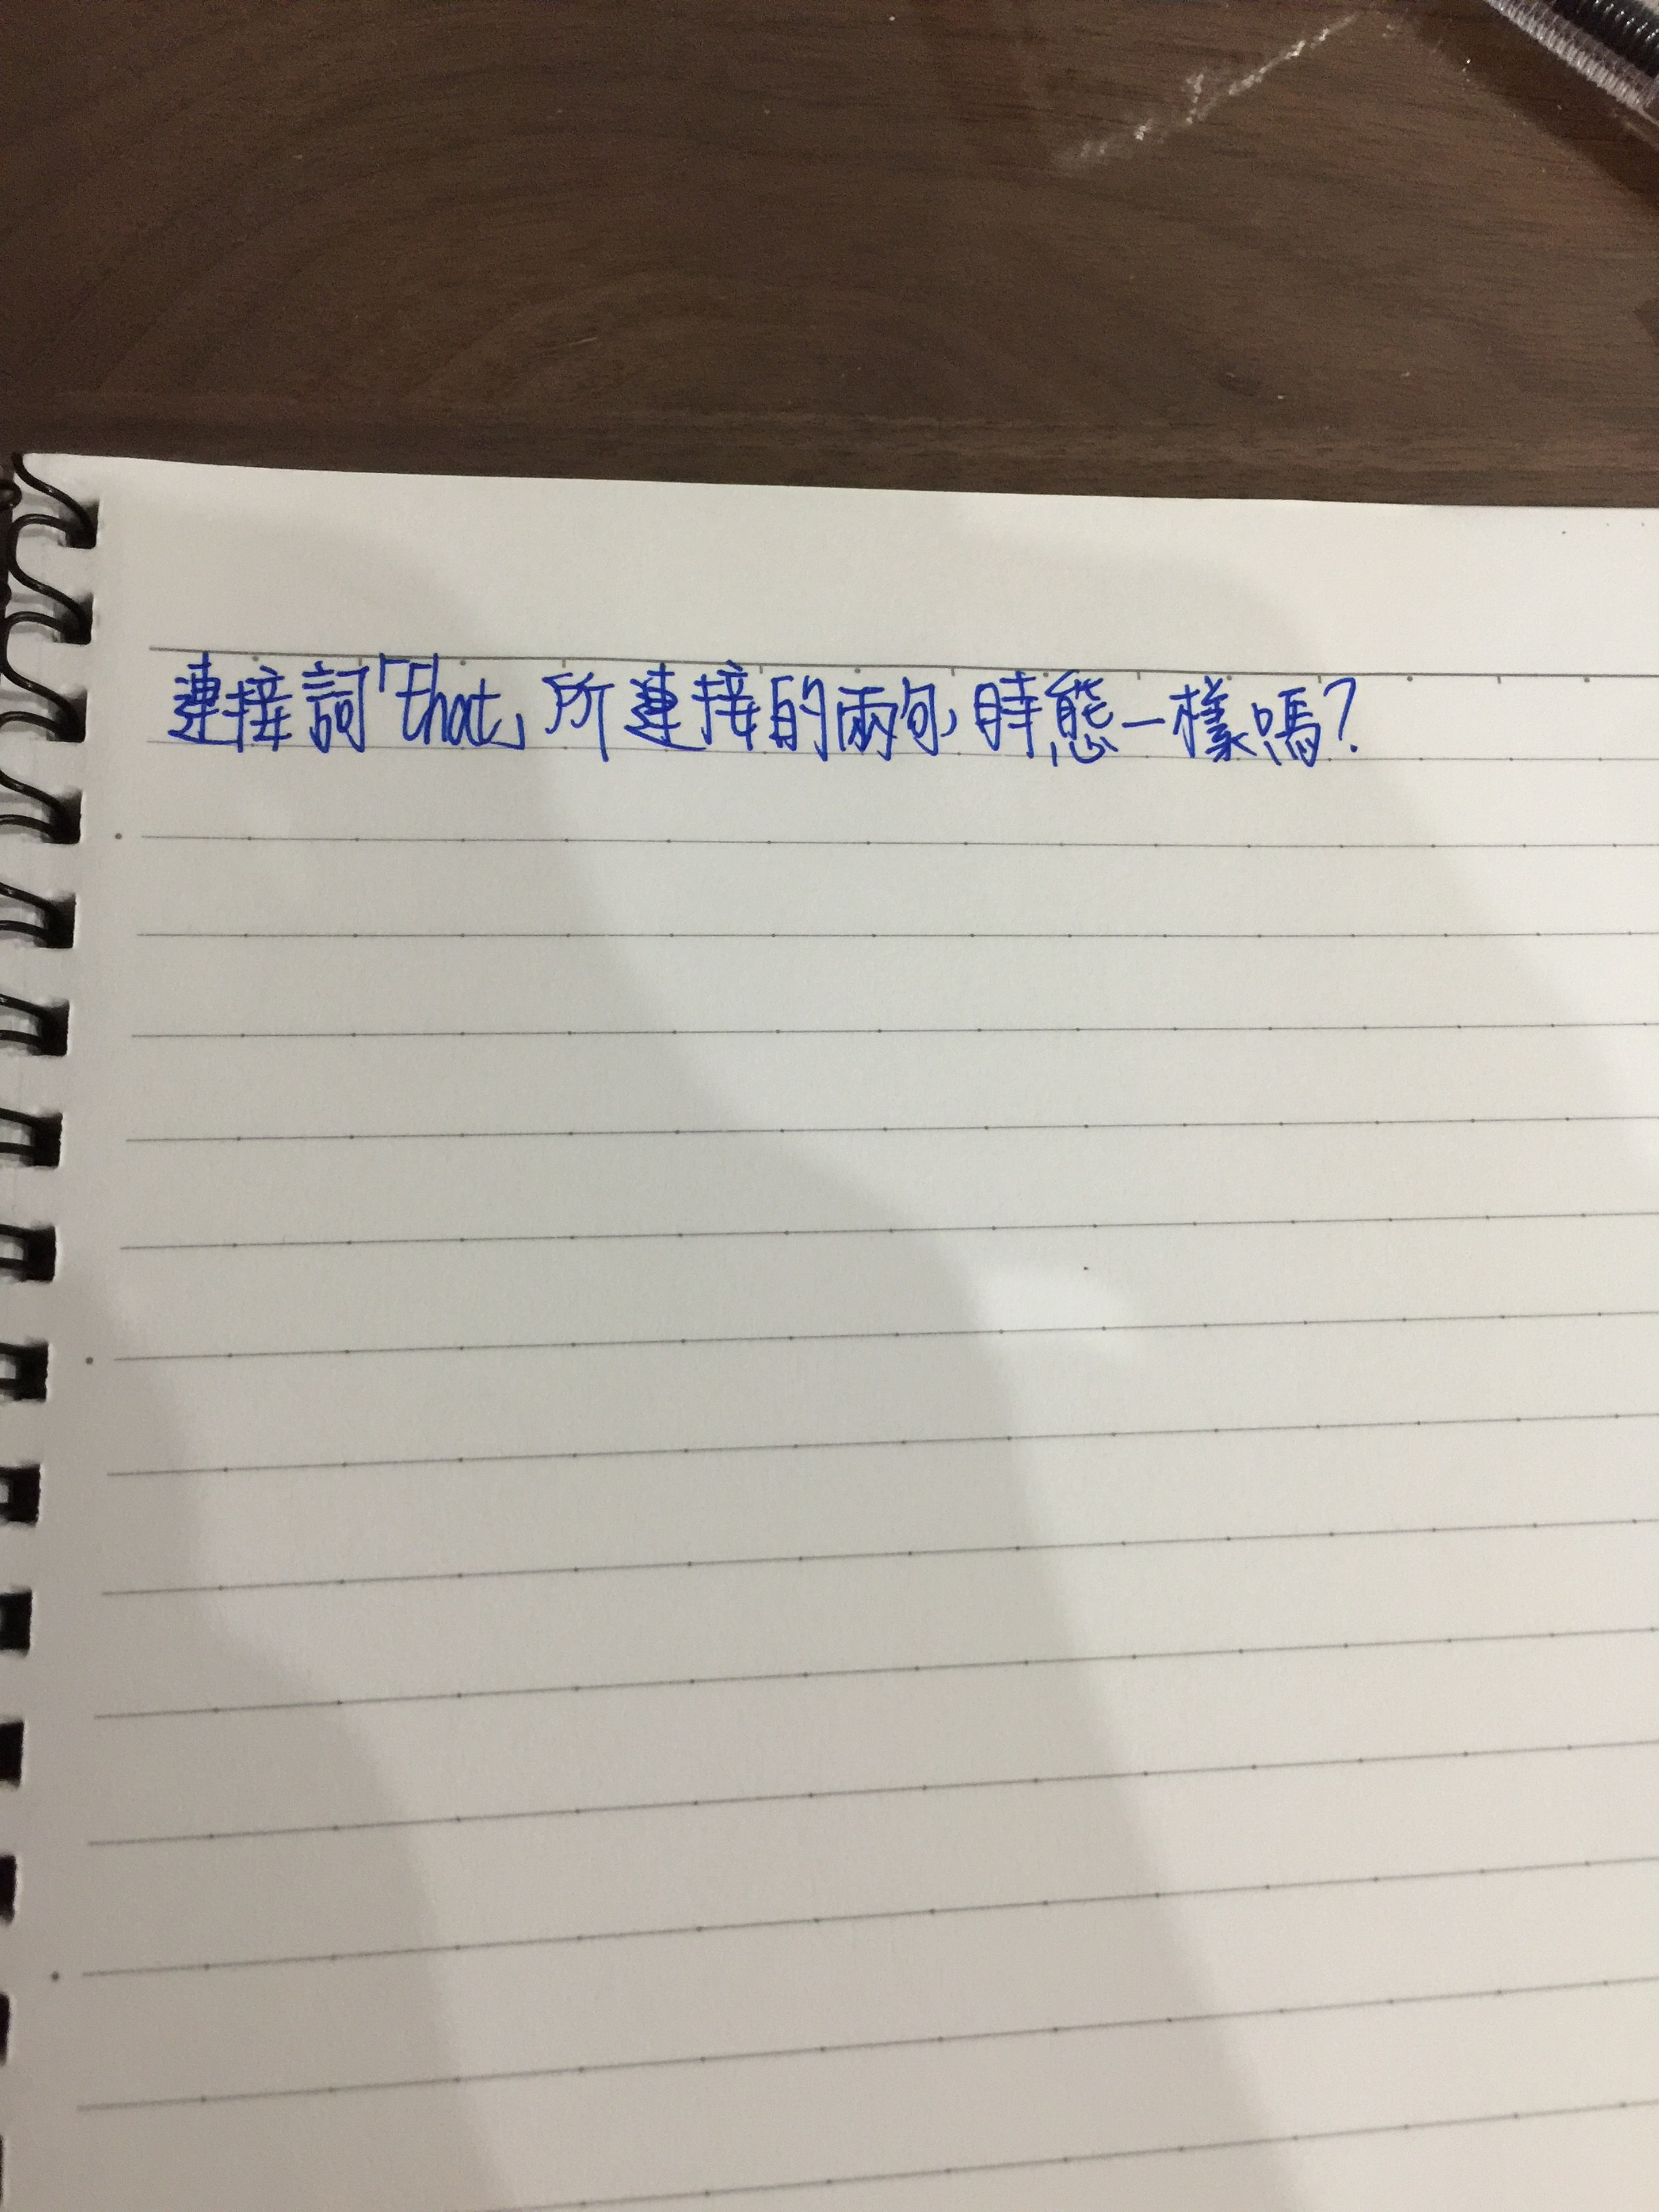 連接詞「that」所連接的兩句,時態一樣嗎?